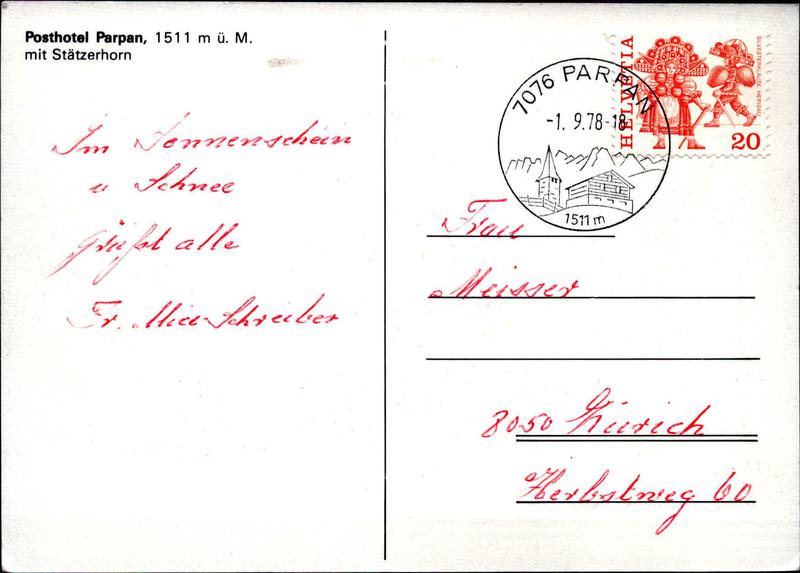 Posthotel Parpan, 1511 m ü. M.
mit Stätzerhorn
Im Sonnenschein
u Schnee
grüßt alle
Fr. Schreiber
HELVETIA
SILVESTERKLÄUSE HERISAU
20
7076 PARPAN
-1. 9.78-18
1511 m
Frau
Meisser
8050 Zürich
Herbstweg 60